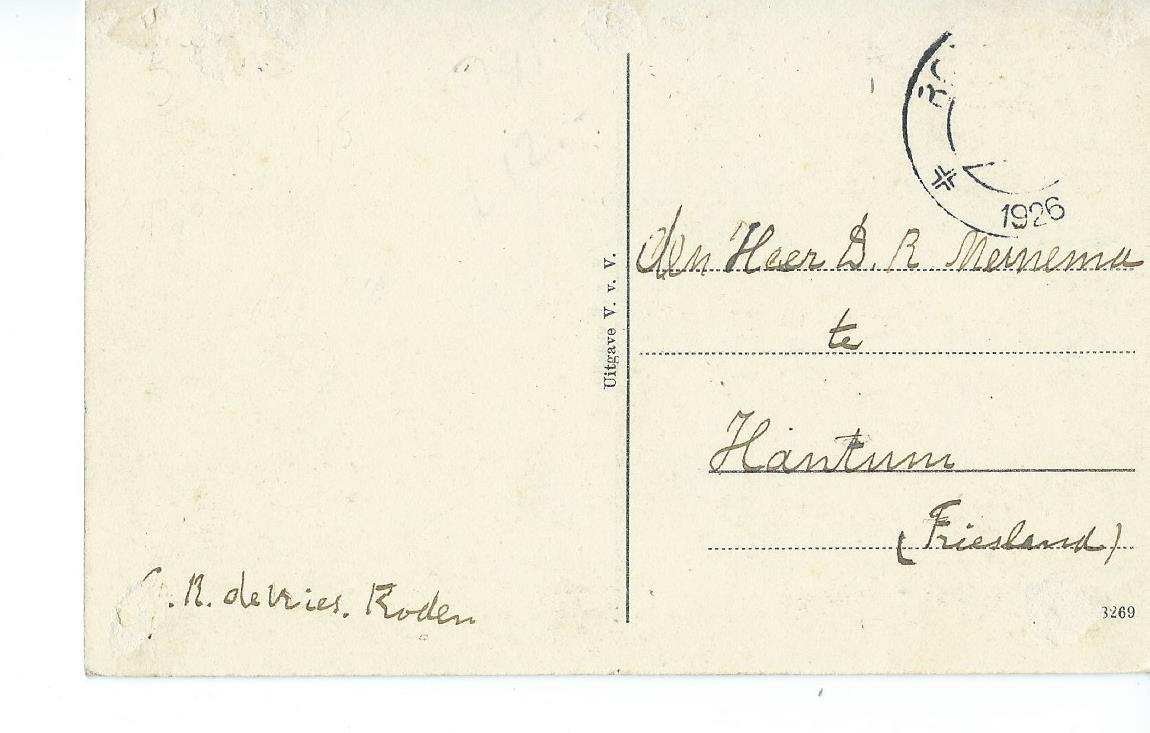 1926
Uitgave V. v. V.
den Heer D. R Meinema
te
Hantum
(Friesland)
. R. de Vries. Roden
3269